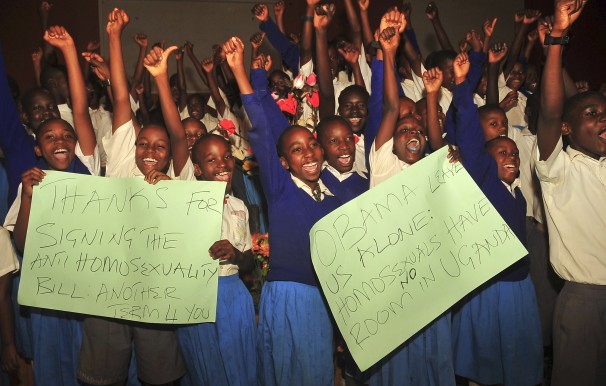 THANKS FOR
SIGNING THE
ANTI HOMOSEXUALITY
BILL. ANOTHER
TERM 4 YOU
OBAMA LEAVE
US ALONE:
HOMOSEXUALS HAVE
NO
ROOM IN UGANDA